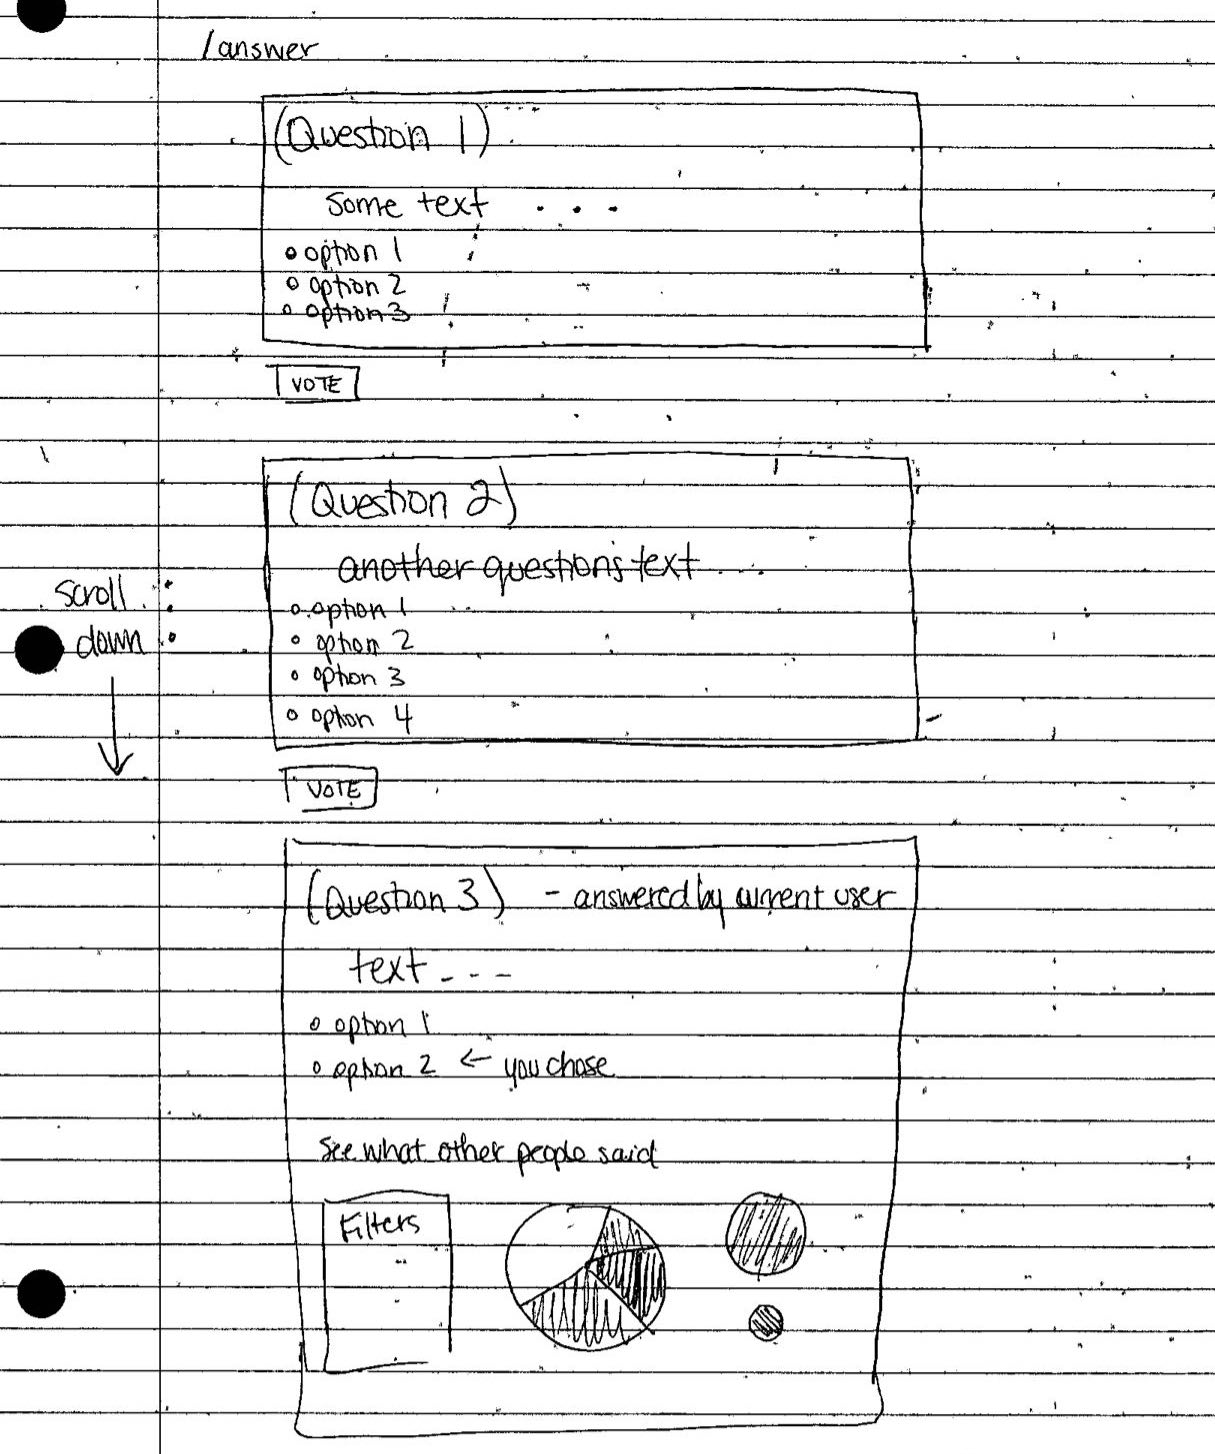 /answer
(Question 1)
some text . . .
option 1
option 2
option 3
VOTE
(Question 2)
another question's text . . .
option 1
option 2
option 3
option 4
scroll
down
VOTE
(Question 3) - answered by current user
text - - -
option 1
option 2 ← you chose
See what other people said
Filters